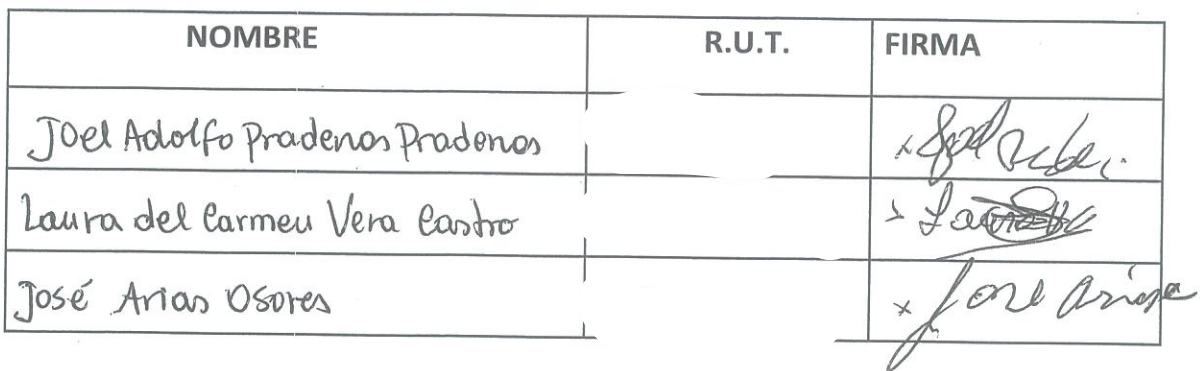 NOMBRE R.U.T. FIRMA
Joel Adolfo Pradenos Pradenos x
Laura del Carmen Vera Castro x
José Arias Osores x Jose Arias